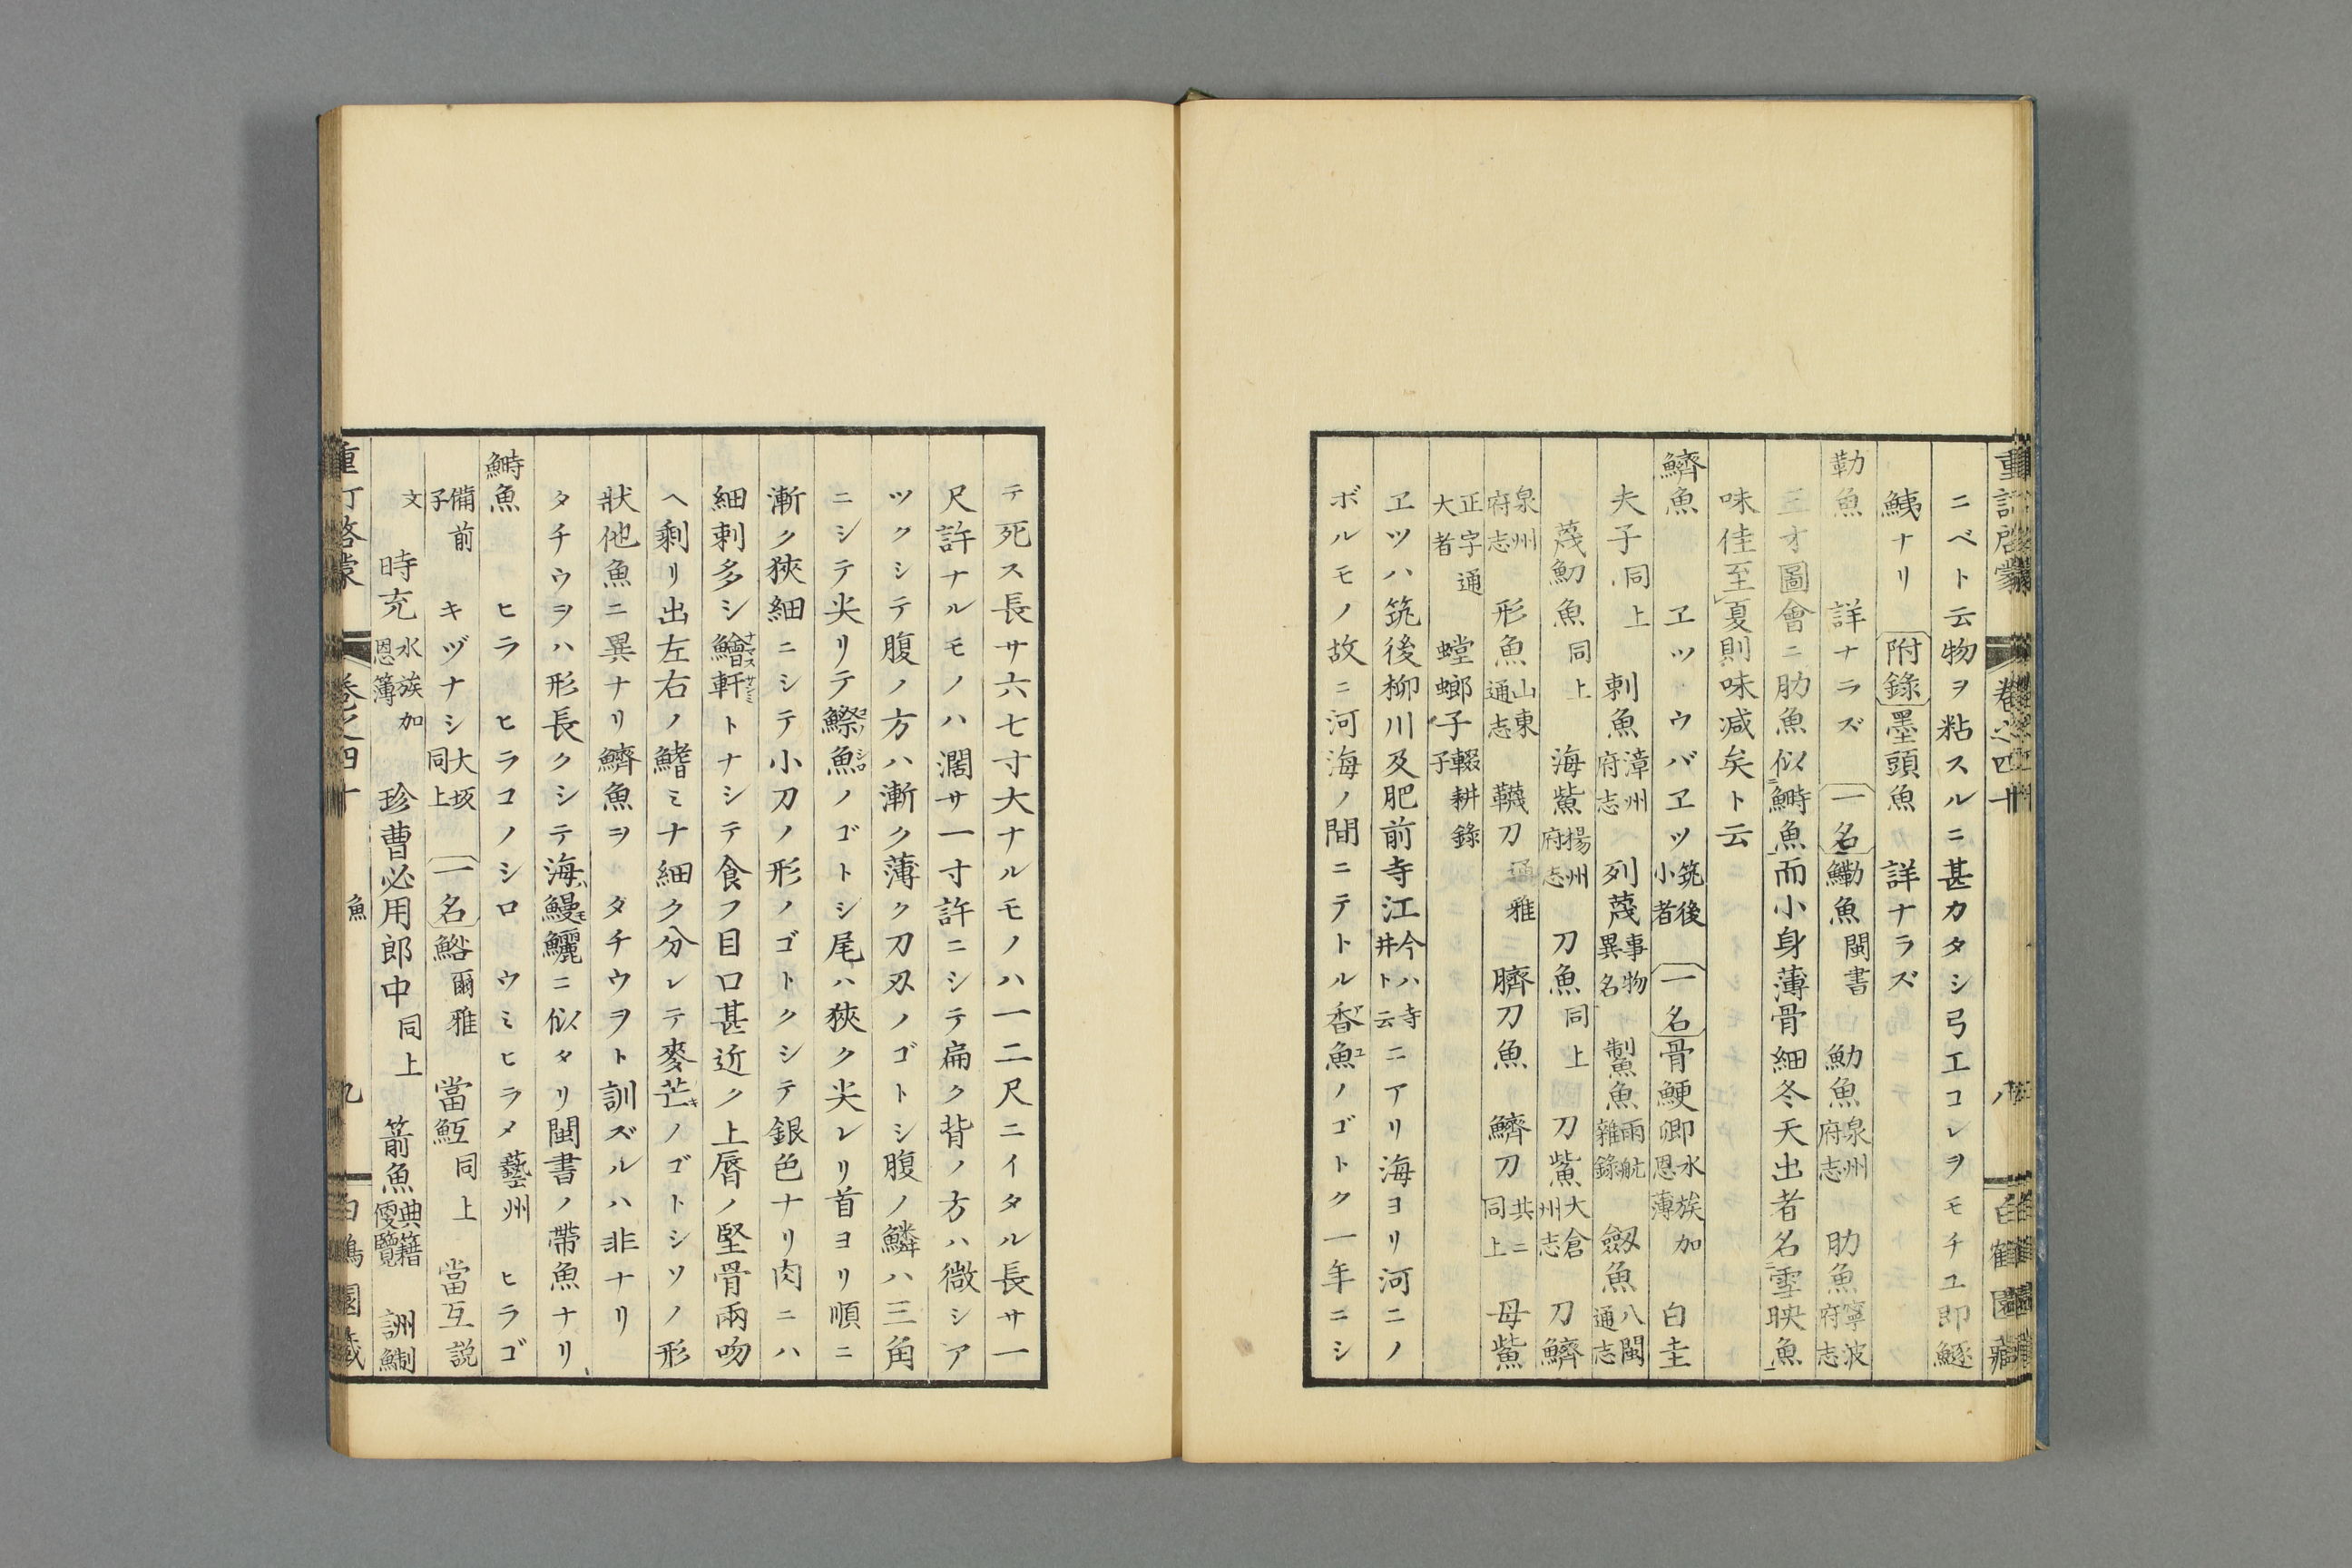 ニベト云物ヲ粘スルニ甚カタシ弓工コレヲモチユ即鱁
鮧ナリ 附錄 墨頭魚 詳ナラズ
勒魚 詳ナラズ 一名 鰳魚 閩書 魩魚 泉州府志 肋魚 寧波府志
三才圖會ニ肋魚似鰣魚而小身薄骨細冬天出者名雪映魚
味佳至夏則味减矣ト云
鱭魚 ヱツ ウバヱツ 筑後小者 一名 骨鯁卿 水族加恩薄 白圭
夫子 同上 刺魚 漳州府志 列蔑 事物異名 鮆魚 雨航雜錄 劔魚 八閩通志
蔑魛魚 同上 海鮆 揚州府志 刀魚 同上 刀鮆 大倉州志 刀鱭
泉州府志 形魚 山東通志 鞿刀 通雅 臍刀魚 鱭刀 共ニ同上 母鮆
正字通大者 螳螂子 輟耕錄子
ヱツハ筑後柳川及肥前寺江 今ハ寺井ト云 ニアリ海ヨリ河ニノ
ボルモノ故ニ河海ノ間ニテトル香魚ノゴトク一年ニシ
重訂啓蒙 卷之四十 八 白鶴園藏
テ死ス長サ六七寸大ナルモノハ一二尺ニイタル長サ一
尺許ナルモノハ濶サ一寸許ニシテ扁ク背ノ方ハ微シア
ツクシテ腹ノ方ハ漸ク薄ク刀刄ノゴトシ腹ノ鱗ハ三角
ニシテ尖リテ鰶魚ノゴトシ尾ハ狹ク尖レリ首ヨリ順ニ
漸ク狹細ニシテ小刀ノ形ノゴトクシテ銀色ナリ肉ニハ
細刺多シ鱠軒トナシテ食フ目口甚近ク上脣ノ堅骨兩吻
ヘ剩リ出左右ノ鰭ミナ細ク分レテ麥芒ノゴトシソノ形
狀他魚ニ異ナリ鱭魚ヲ タチウヲト訓ズルハ非ナリ
タチウヲハ形長クシテ海鰻鱺ニ似タリ閩書ノ帶魚ナリ
鰣魚 ヒラ ヒラコノシロ ウミヒラメ 藝州 ヒラゴ
備前子 キヅナシ 大坂同上 一名 鮥 爾雅 當魱 同上 當互 説
文 時充 水族加恩簿 珍曹必用郎中 同上 箭魚 典籍便覽 詶鯯
重訂啓蒙 卷之四十 魚 九 白鶴園藏